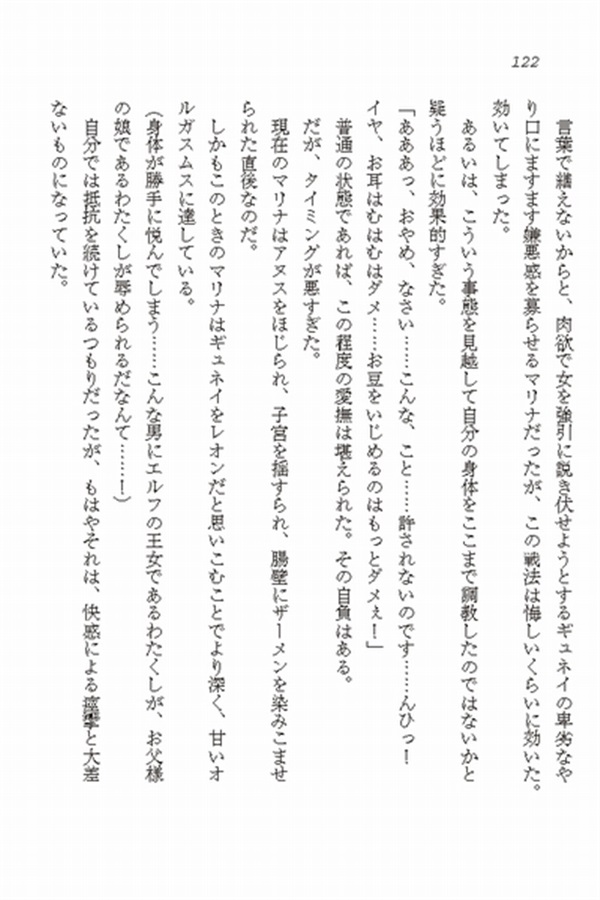 122
言葉で繕えないからと、肉欲で女を強引に説き伏せようとするギュネイの卑劣なや
り口にますます嫌悪感を募らせるマリナだったが、この戦法は悔しいくらいに効いた。
効いてしまった。
あるいは、こういう事態を見越して自分の身体をここまで調教したのではないかと
疑うほどに効果的すぎた。
「あああっ、おやめ、なさい……こんな、こと……許されないのです……んひっ！
イヤ、お耳はむはむはダメ……お豆をいじめるのはもっとダメぇ！」
普通の状態であれば、この程度の愛撫は堪えられた。その自負はある。
だが、タイミングが悪すぎた。
現在のマリナはアヌスをほじられ、子宮を揺すられ、腸壁にザーメンを染みこませ
られた直後なのだ。
しかもこのときのマリナはギュネイをレオンだと思いこむことでより深く、甘いオ
ルガスムスに達している。
（身体が勝手に悦んでしまう……こんな男にエルフの王女であるわたくしが、お父様
の娘であるわたくしが辱められるだなんて……！）
自分では抵抗を続けているつもりだったが、もはやそれは、快感による痙攣と大差
ないものになっていた。